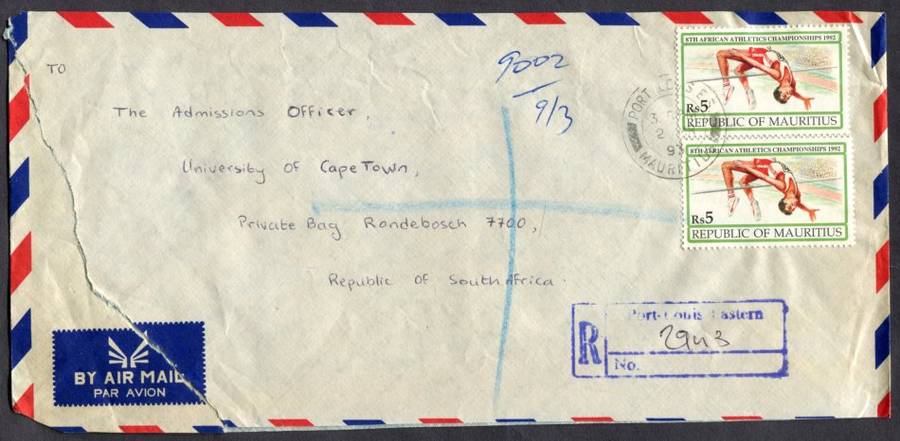 TO
The Admissions Officer,
University of Cape Town,
Private Bag Rondebosch 7700,
Republic of South Africa.
9002
9/3
8TH AFRICAN ATHLETICS CHAMPIONSHIPS 1992
Rs5
REPUBLIC OF MAURITIUS
8TH AFRICAN ATHLETICS CHAMPIONSHIPS 1992
Rs5
REPUBLIC OF MAURITIUS
PORT
MAURITIUS
R
Port-Louis Eastern
2943
No.
BY AIR MAIL
PAR AVION